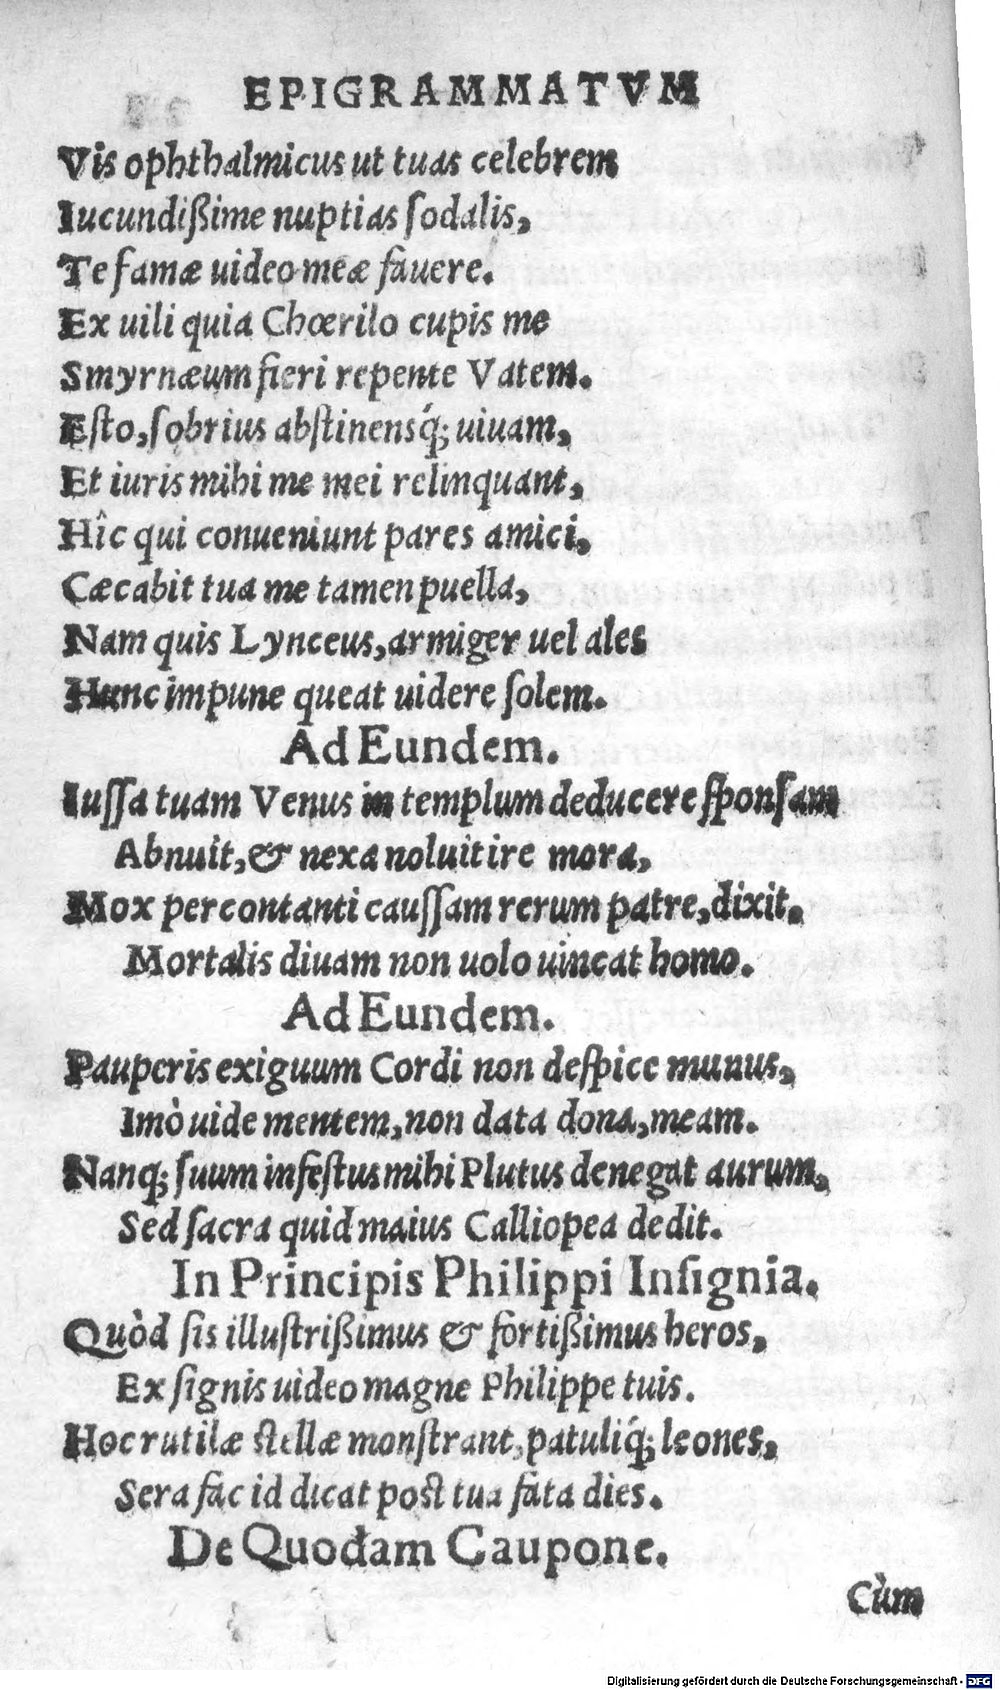 EPIGRAMMATVM
Vis ophthalmicus ut tuas celebrem
Iucundißime nuptias ſodalis,
Te famæ uideo meæ fauere.
Ex uili quia Chœrilo cupis me
Smyrnæum fieri repente Vatem.
Eſto, ſobrius abſtinensq́; uiuam,
Et iuris mihi me mei relinquant,
Hîc qui conueniunt pares amici,
Cæcabit tua me tamen puella,
Nam quis Lynceus, armiger uel ales
Hunc impune queat uidere ſolem.
Ad Eundem.
Iuſſa tuam Venus in templum deducere ſponſam
Abnuit, & nexa noluit ire mora,
Mox percontanti cauſſam rerum patre, dixit.
Mortalis diuam non uolo uincat homo.
Ad Eundem.
Pauperis exiguum Cordi non deſpice munus,
Imò uide mentem, non data dona, meam.
Nanq; ſuum infeſtus mihi Plutus denegat aurum,
Sed ſacra quid maius Calliopea dedit.
In Principis Philippi Inſignia.
Quòd ſis illuſtrißimus & fortißimus heros,
Ex ſignis uideo magne Philippe tuis.
Hoc rutilæ ſtellæ monſtrant, patuliq́; leones,
Sera fac id dicat poſt tua fata dies.
De Quodam Caupone.
Cùm
Digitalisierung gefördert durch die Deutsche Forschungsgemeinschaft - DFG